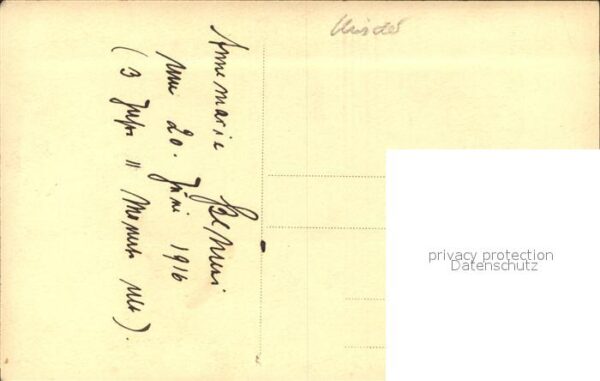 Annemarie
am 20. Juni 1916
(3 Jahre 11 Monate alt).
Kinder
privacy protection
Datenschutz